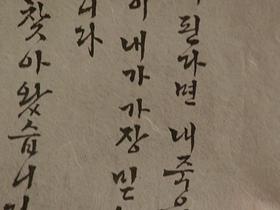 된다면 내 죽
이 내가 가장 믿
니다
찾아왔습니